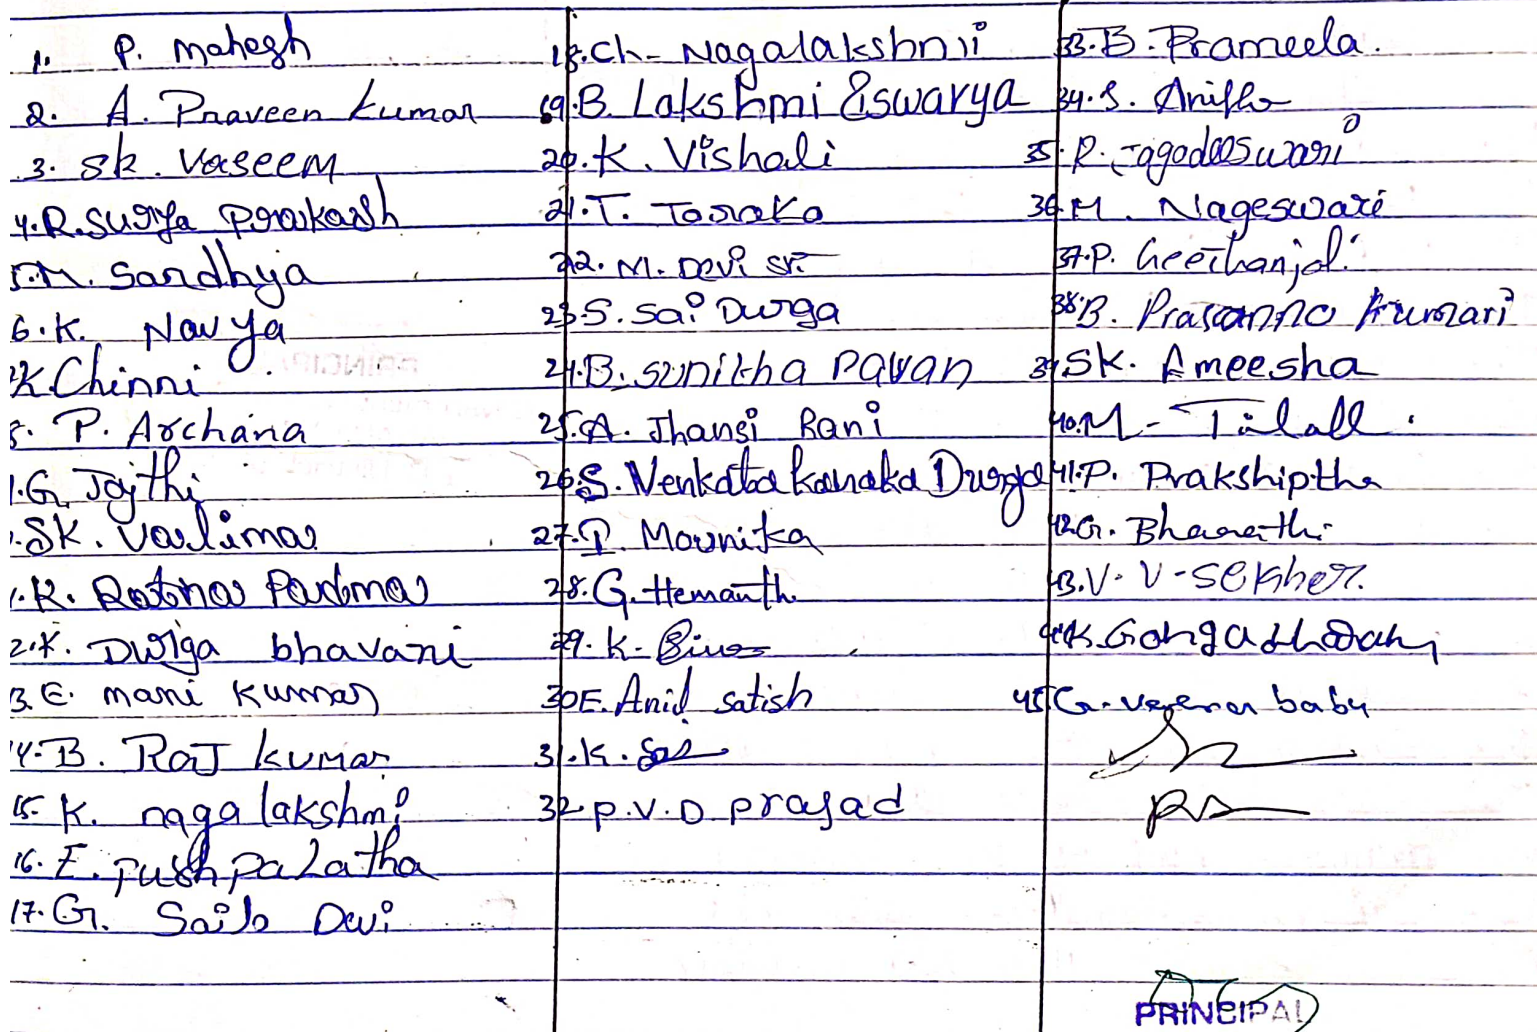 1. P. Mahesh
2. A. Praveen kumar
3. Sk. Vaseem
4. R. Surya prakash
5. M. Sandhya
6. K. Navya
K. Chinni
8. P. Archana
G. Jojthi
SK. Valima
K. Ratna Padma
2. K. Durga bhavani
3. E. mani kumar
14. B. Raj kumar
15. K. naga lakshmi
16. E. pushpa Latha
17. G. Devi
18. Ch- Nagalakshmi
19. B. Lakshmi Eswarya
20. K. Vishali
21. T. Taraka
22. M. Devi sri
23. S. Sai Durga
24. B. sunitha pavan
25. A. Jhansi Rani
26. S. Venkata kanaka Durga
27. P. Mounika
28. G. Hemanth
29. K.
30 E. Anil satish
31. K.
32 P.V.D prasad
33. B. Prameela.
34. S. Anitha
35. R. Jagadeeswari
36. M. Nageswari
37. P. Geethanjali
38 B. Prasanna kumari
39 SK. Ameesha
40. M-
41. P. Prakshiptha
42 G. Bharathi
43. V. V-Sekher.
44 K. Gangadhar
45 G. veera babu
PRINCIPAL